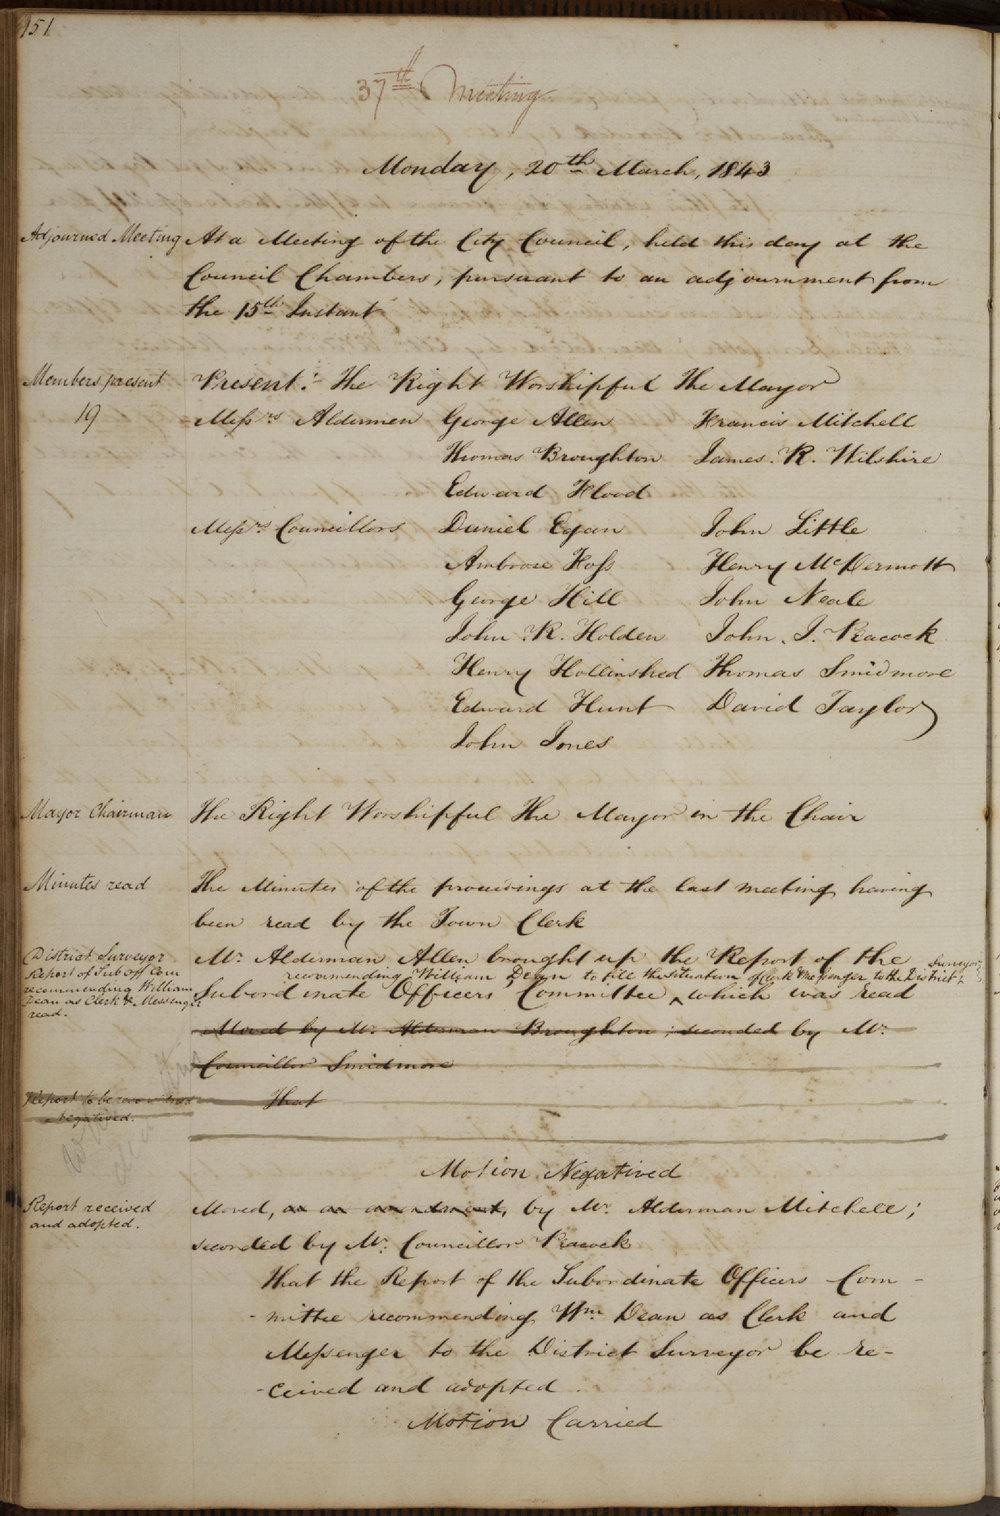 151
37th Meeting
Monday, 20th March, 1843
Adjourned Meeting At a Meeting of the City Council, held this day at the
Council Chambers, pursuant to an adjournment from
the 15th Instant
Members present Present:- The Right Worshipful The Mayor
19 Messrs Aldermen George Allen Francis Mitchell
Thomas Broughton James. R. Wilshire
Edward Flood
Messrs Councillors Daniel Egan John Little
Ambrose Foss Henry McDermott
George Hill John Neale
John. R. Holden John. J. Peacock
Henry Hollinshed Thomas Smidmore
Edward Hunt David Taylor
John Jones
Mayor Chairman The Right Worshipful The Mayor in the Chair
Minutes read The Minutes of the proceedings at the last meeting having
been read by the Town Clerk
District Surveyor Mr. Alderman Allen brought up the Report of the
Report of Sub Off Com recommending William Dean to fill the situation of Clerk & Messenger to the District Surveyor;
recommending William Subordinate Officers Committee, which was read
Dean as Clerk & Messenger
read.
Moved by Mr. Alderman Broughton; seconded by Mr.
Councillor Smidmore
Report to be
That
Negatived.
Motion Negatived
Report received Moved, as an amendment, by Mr. Alderman Mitchell;
and adopted. seconded by Mr. Councillor Peacock
That the Report of the Subordinate Officers Com-
-mittee recommending Wm. Dean as Clerk and
Messenger to the District Surveyor be re-
-ceived and adopted.
Motion Carried